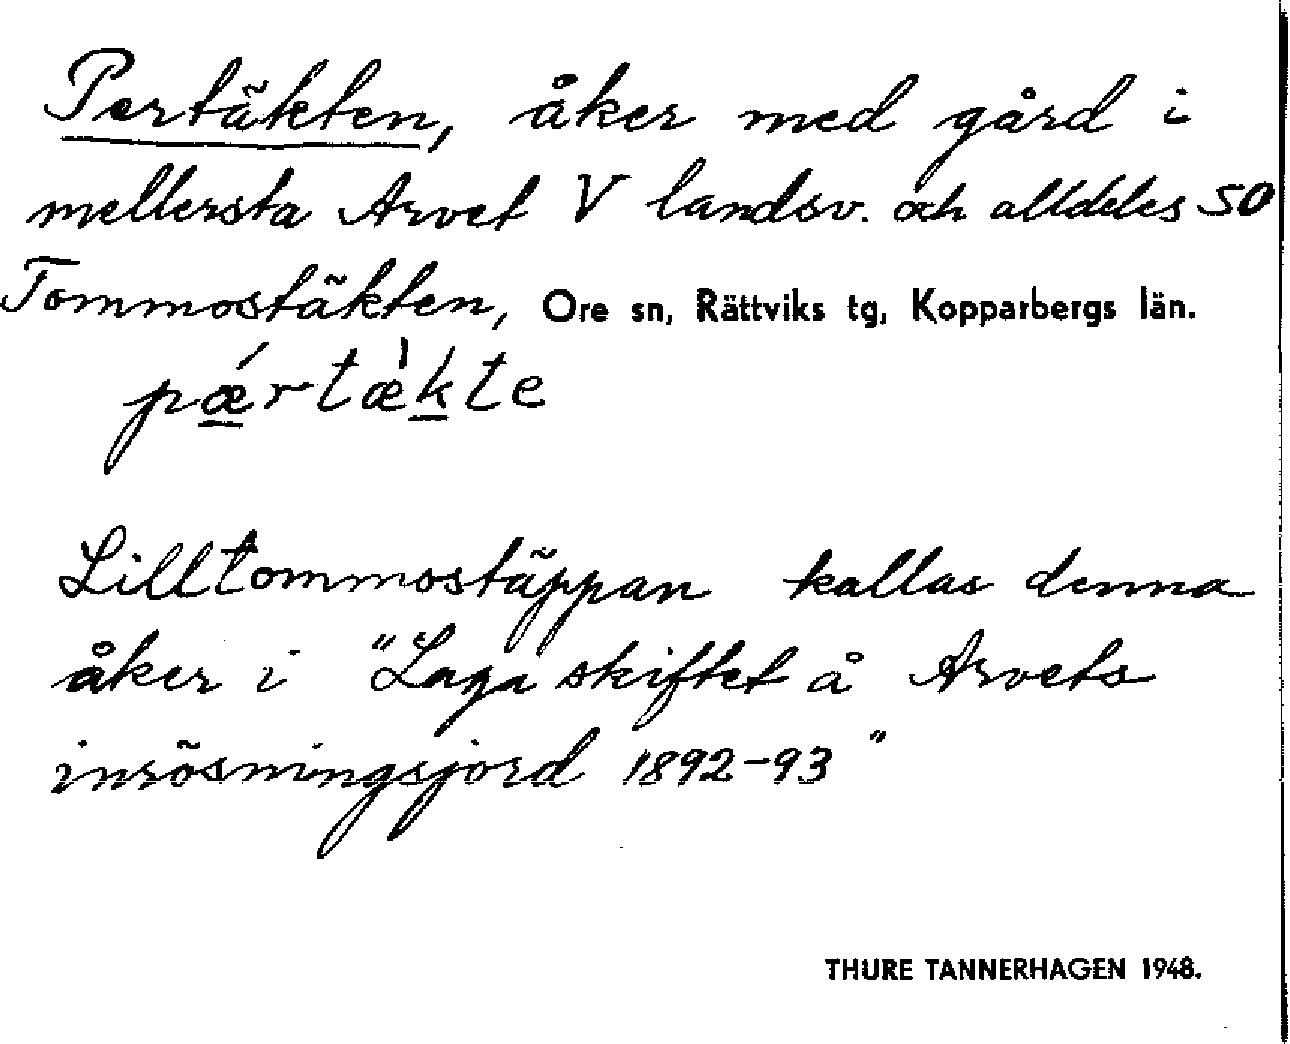 Pertäkten, åker med gård i
mellersta Arvet V landsv. och alldeles SO
Tommostäkten, Ore sn, Rättviks tg, Kopparbergs län.
pǽrtæ̀kte
Lilltommostäppan kallas denna
åker i "Laga skiftet å Arvets
inrösningsjord 1892-93"
THURE TANNERHAGEN 1948.